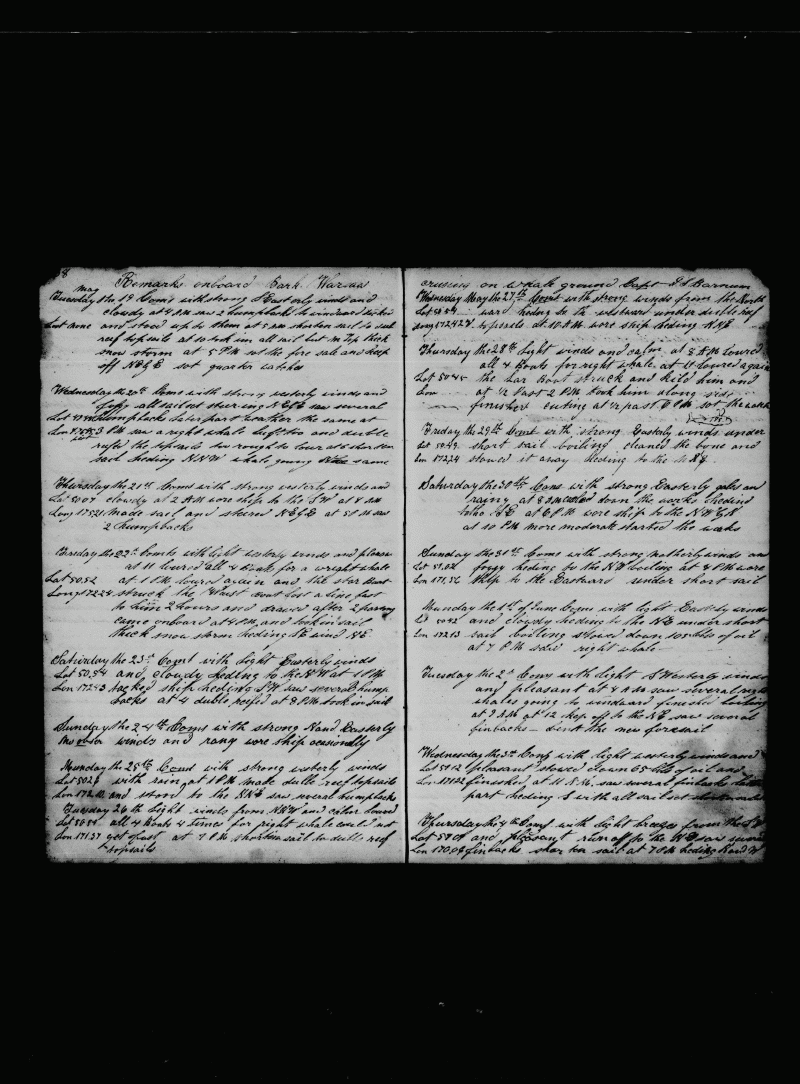 Remarks onboard Bark
May
Tuesday the 19 Coms with strong Easterly winds and
cloudy at 4 PM saw 2 humpbacks to windward
and stood up to them at 5 shorten sail to
reef topsails at 10 took in all sail but M Top thick
snow storm at 5 PM set the fore sale and keep
off NE&E set quarter watches
Wednesday the 20th Coms with strong westerly winds and
all sail set stearing NE&E saw several
humpbacks later part weather the same at
3 PM saw a right whale and duble
reeft the topsails to rough to lour at 6 shorten
sail heding NNW whale going the same
Thursday the 21st Coms with strong westerly winds and
Lat 50.07 cloudy at 2 AM wore ship to the SW at 4 AM
Long 175.21 made sail and steared NE&E at 5 PM saw
2 humpbacks
the 22d Comts with light westerly winds and
at 11 loured all 4 boats for a wright whale
Lat 50.52 at 1 PM loured again and the star boat
Long 172.24 struck the waist boat lost a line fast
to him 2 hours and drawed after 2
came onboard at 4 PM and took in sail
thick snow storm heding
Saturday the 23d Comt with light Easterly winds
Lat 50.54 and cloudy heding to the NW at 1 PM
Lon 172.43 tacked ship heding SW saw several hump
backs at 4 duble reefed at 8 PM took in sail
Sunday the 24th Coms with strong N and Easterly
No obser winds and rany wore ship
Munday the 25th Comt with strong westerly winds
with rain at 1 PM make dulle reef topsails
and stood to the NNE saw several humpbacks
Tuesday 26th light winds from NNW and calm lourd
all 4 boats 4 times for right whale could not
Lon 171.37 get fast at 7 PM shorten sail to dulle reef
topsails
crusing on whale ground Capt Barnum
Wednesday May the 27th Comt with strong winds from the North
Lat 50.54 ward heding to the westward under duble reef
Long 172.42 topsails at 10 AM wore ship heding
Thursday the 28th light winds and calm at 8 AM loured
all 4 boats for right whale at 11 loured again
Lat 50.45 the Lar Boat struck and kild him and
Lon at ½ Past 2 PM took him along side
finished cuting at ½ past 6 PM set the watch
Friday the 29th Comt with strong Easterly winds under
short sail boiling cleaned the bone and
stowed it away heding to the
Saturday the 30th Coms with strong Easterly gales and
rainy at 8 AM down the works heding
to the SE at 6 PM wore ship to the NW
at 10 PM more moderate started the works
Sunday the 31st Coms with strong notherly winds and
fogy heding to the NW boiling at 4 PM wore
Lon 171.56 ship to the Eastward under short sail
Munday the 1st of June Coms with light Easterly winds
and cloudy heding to the NE under short
sail boiling stowed down 105 bbls of oil
at 7 PM saw right whale
Tuesday the 2d Coms with light S Westerly winds
and pleasant at 4 AM saw several right
whales going to windward finished boiling
at 9 AM at 12 kep off to the NE saw several
finbacks bent the new foresail
Wednesday the 3d Comt with light westerly winds and
pleasant stowed down 65 bbls of oil and
finished at 11 AM saw several finbacks latter
part heding S with all sail set
Thursday the 4th Comt with light breeze from the
Lat 50.08 and pleasant run off to the NE saw several
finbacks shorten sail at 7 PM heding